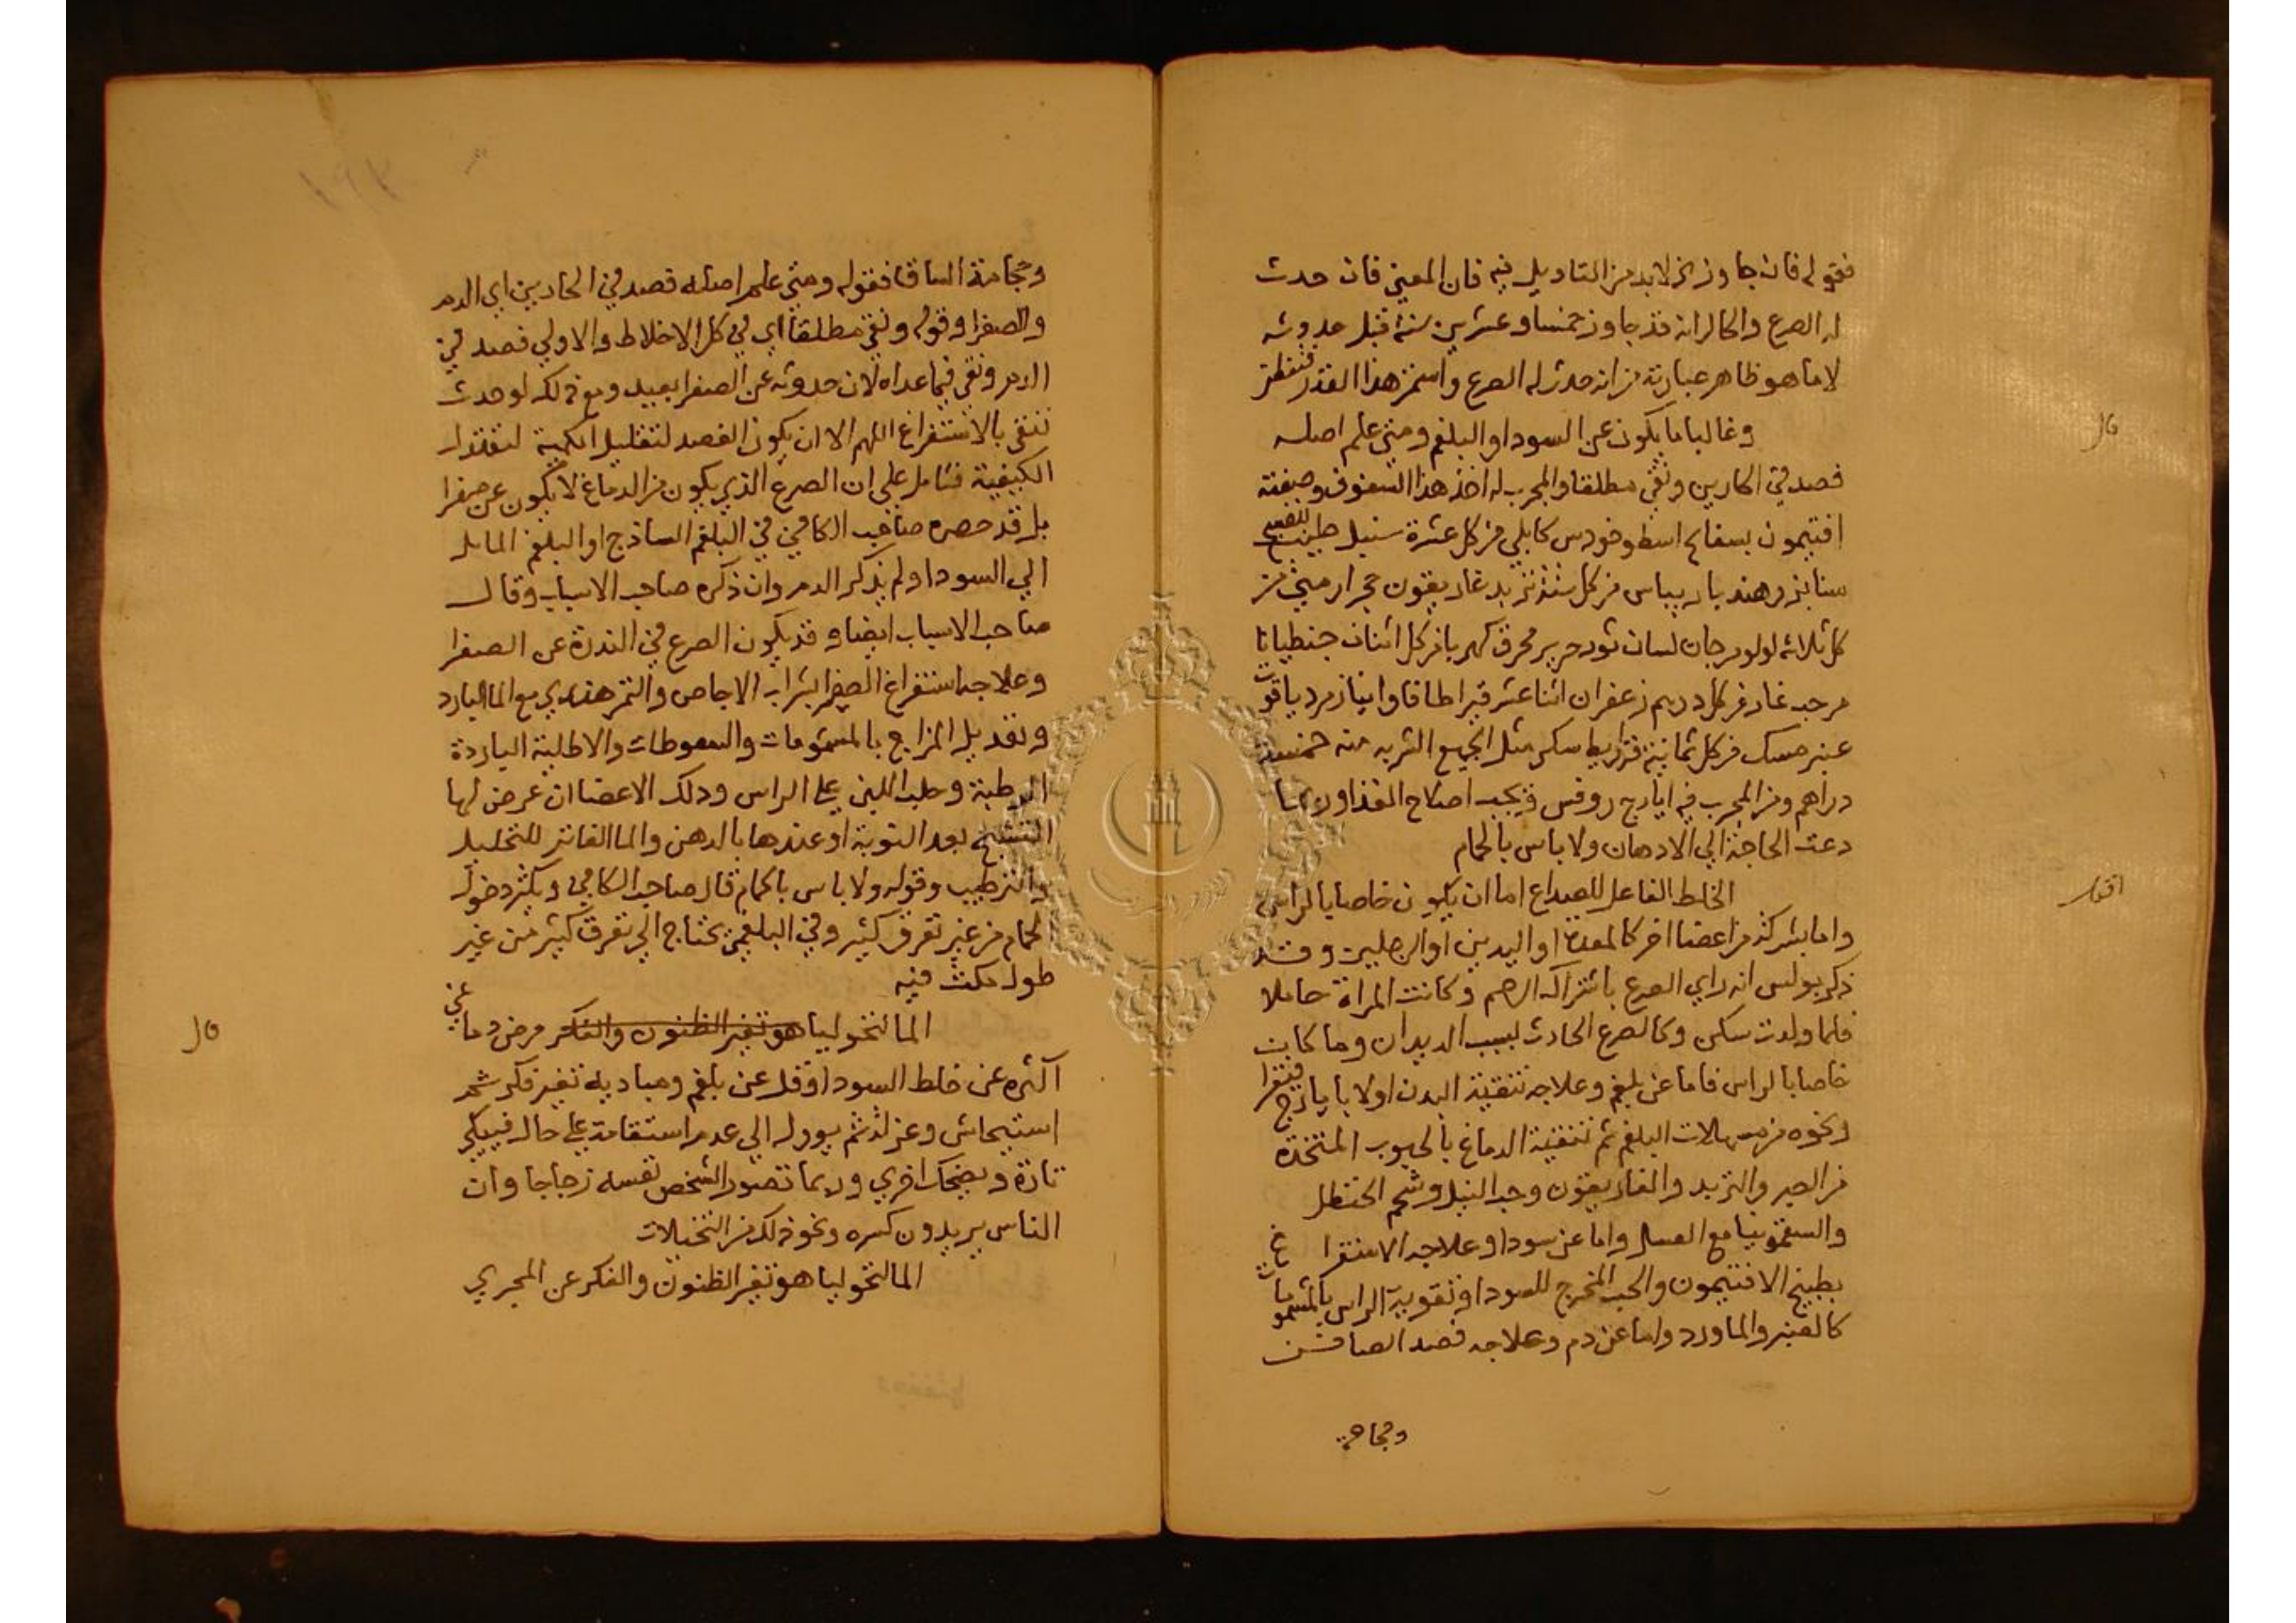 فقوله فان جاوز الخ لابد من التاويل فيه فان المعني فان حدث
له الصرع والحال انه قد جاوز خمسا وعشرين سنة قبل حدوثه
لا ما هو ظاهر عبارته من انه حدث له الصرع واستمر هذا القدر
قال
وغالبا ما يكون عن السودا والبلغم ومتي علم اصله
فصد في الحارين ونقي مطلقا والمجرب له اخذ هذا السفوف وصنعته
افتيمون بسفايج اسطوخودس كابلي من كل عشرة سنبل طيب
سنا بزر هندبا من كل ستة تربد غاريقون حجر ارمني من
كل ثلاثة لولو مرجان لسان ثور حرير محرق كهربا من كل اثنان جنطيانا
مر حب غار من كل درهم زعفران اثنا عشر قيراطا قاوانيا زمرد ياقوت
عنبر مسك من كل ثمانية قراريط سكر مثل الجميع الشربه منه خمسة
دراهم ومن المجرب فيه ايارج روفس ويجب اصلاح الغذا وربما
دعت الحاجة الي الادهان ولا باس بالحمام
اقول
الخلط الفاعل للصداع اما ان يكون خاصا بالراس
واما بشركة من اعضا اخر كالمعدة او اليدين او الرجلين وقد
ذكر بولس انه راي الصرع باشتراك الرحم وكانت المراة حاملا
فلما ولدت سكن وكالصرع الحادث بسبب الديدان وما كان
خاصا بالراس فاما عن بلغم وعلاجه تنقية البدن اولا بايارج فيقرا
ونحوه من مسهلات البلغم ثم تنقية الدماغ بالحبوب المتخذة
من الصبر والتربد والغاريقون وحب النيل وشحم الحنظل
والسقمونيا مع العسل واما عن سودا وعلاجه الاستفراغ
بطبيخ الافتيمون والحب المخرج للسودا وتقوية الراس بالمشمومات
كالعنبر والماورد واما عن دم وعلاجه فصد الصافن
وحجامة
وحجامة الساق فقوله ومتي علم اصله فصد في الحارين اي الدم
والصفرا وقوله ونقي مطلقا اي في كل الاخلاط والاولي فصد في
الدم ونقي فيما عداه لان حدوثه عن الصفرا بعيد ومع ذلك لو حدث
ننقي بالاستفراغ اللهم الا ان يكون الفصد لتقليل الكمية
الكيفية فتامل علي ان الصرع الذي يكون من الدماغ لا يكون عن صفرا
بل قد حصره صاحب الكافي في البلغم الساذج او البلغم المايل
الي السودا ولم يذكر الدم وان ذكره صاحب الاسباب وقال
صاحب الاسباب ايضا وقد يكون الصرع في الندرة عن الصفرا
وعلاجه استفراغ الصفرا بشراب الاجاص والتمر هندي مع الما البارد
وتعديل المزاج بالمشمومات والسعوطات والاطلية الباردة
الرطبة وحلب اللبن علي الراس ودلك الاعضا ان عرض لها
التشنج بعد النوبة او عندها بالدهن والما الفاتر للتحليل
والترطيب وقوله ولا باس بالحمام قال صاحب الكافي ويكثر دخول
الحمام من غير تعرق كثير وفي البلغمي يحتاج الي تعرق كثير من غير
طول مكث فيه
المالنخوليا هو تغير الظنون والفكر مرض دماغي
اكثره عن خلط السودا وقل عن بلغم ومباديه تغير فكر ثم
استيحاش وعزلة ثم يوول الي عدم استقامة علي حال فيبكي
تارة ويضحك اخري وربما تصور الشخص نفسه زجاجا وان
الناس يريدون كسره ونحو ذلك من التخيلات
قال
المالنخوليا هو تغير الظنون والفكر عن المجري